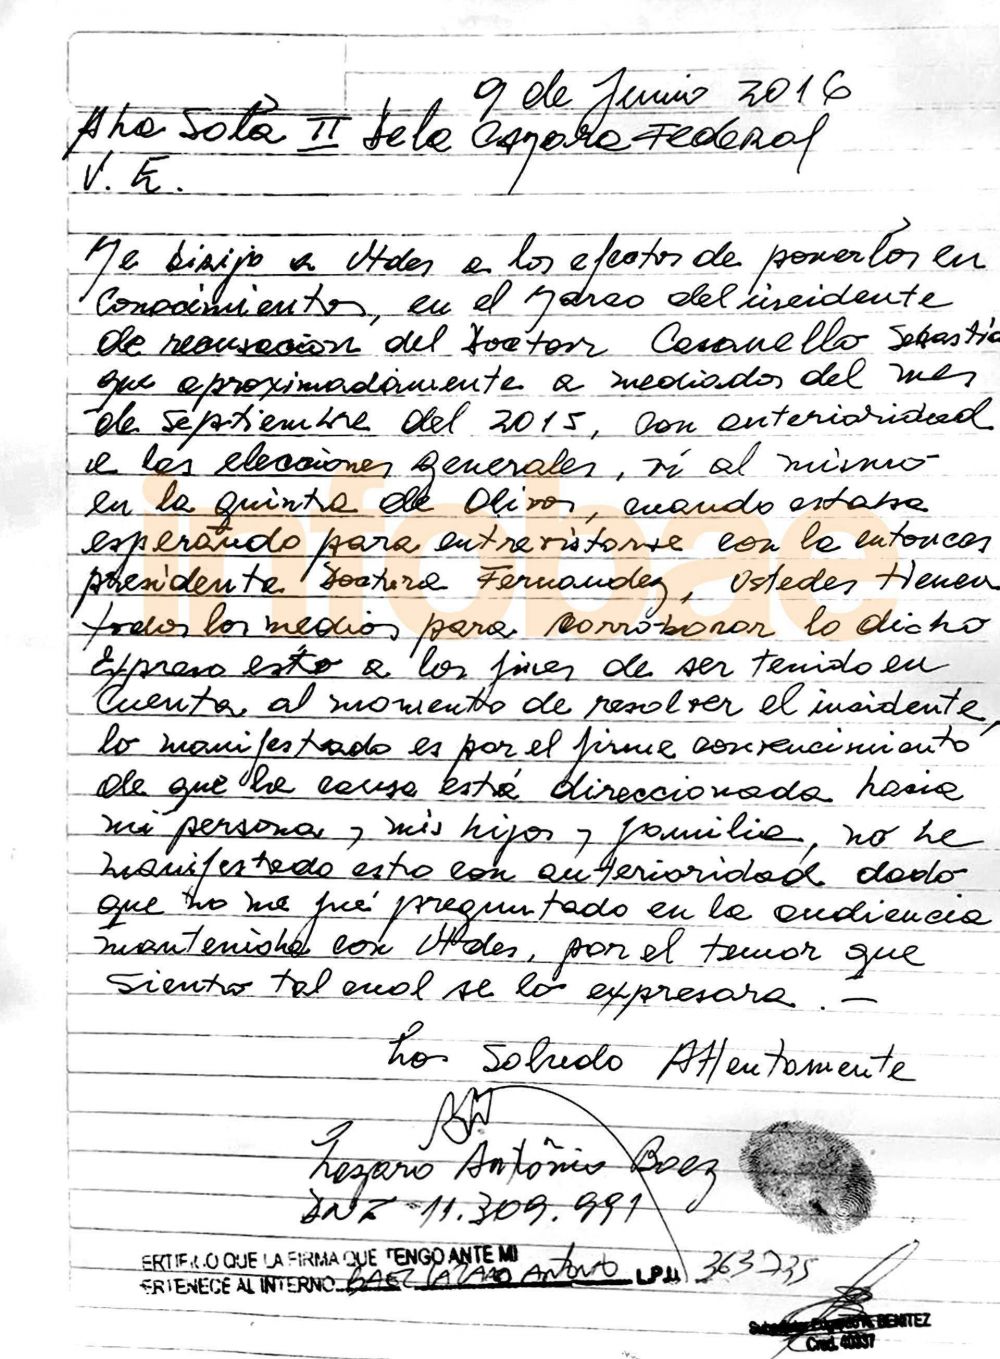 9 de Junio 2016
A la Sala II De la Camara Federal
V. E.
Me Dirijo a Utdes a los efectos de ponerlos en
Conocimientos, en el Marco del incidente
de recusacion del Doctor Casanello Sebastia
que aproximadamente a mediados del mes
de septiembre del 2015, con anterioridad
a las elecciones generales, ví al mismo
en la quinta de Olivos, cuando estaba
esperando para entrevistarse con la entonces
presidenta Doctora Fernandez, Ustedes tienen
todos los medios para corroborar lo dicho
Expreso esto a los fines de ser tenido en
Cuenta al momento de resolver el incidente,
lo manifestado es por el firme convencimiento
de que la causa está direccionada hacia
mi persona, mis hijos y familia, no he
manifestado esto con anterioridad dado
que no me fué preguntado en la audiencia
mantenida con Utdes, por el temor que
siento tal cual se lo expresara. —
infobae
Los Saludo Attentamente
Lazaro António Baez
DNI 11.309.991
ERTIFICO QUE LA FIRMA QUE TENGO ANTE MI
ERTENECE AL INTERNO BAEZ LAZARO ANTONIO L.P.U 363735
BENITEZ
Cred. 40337